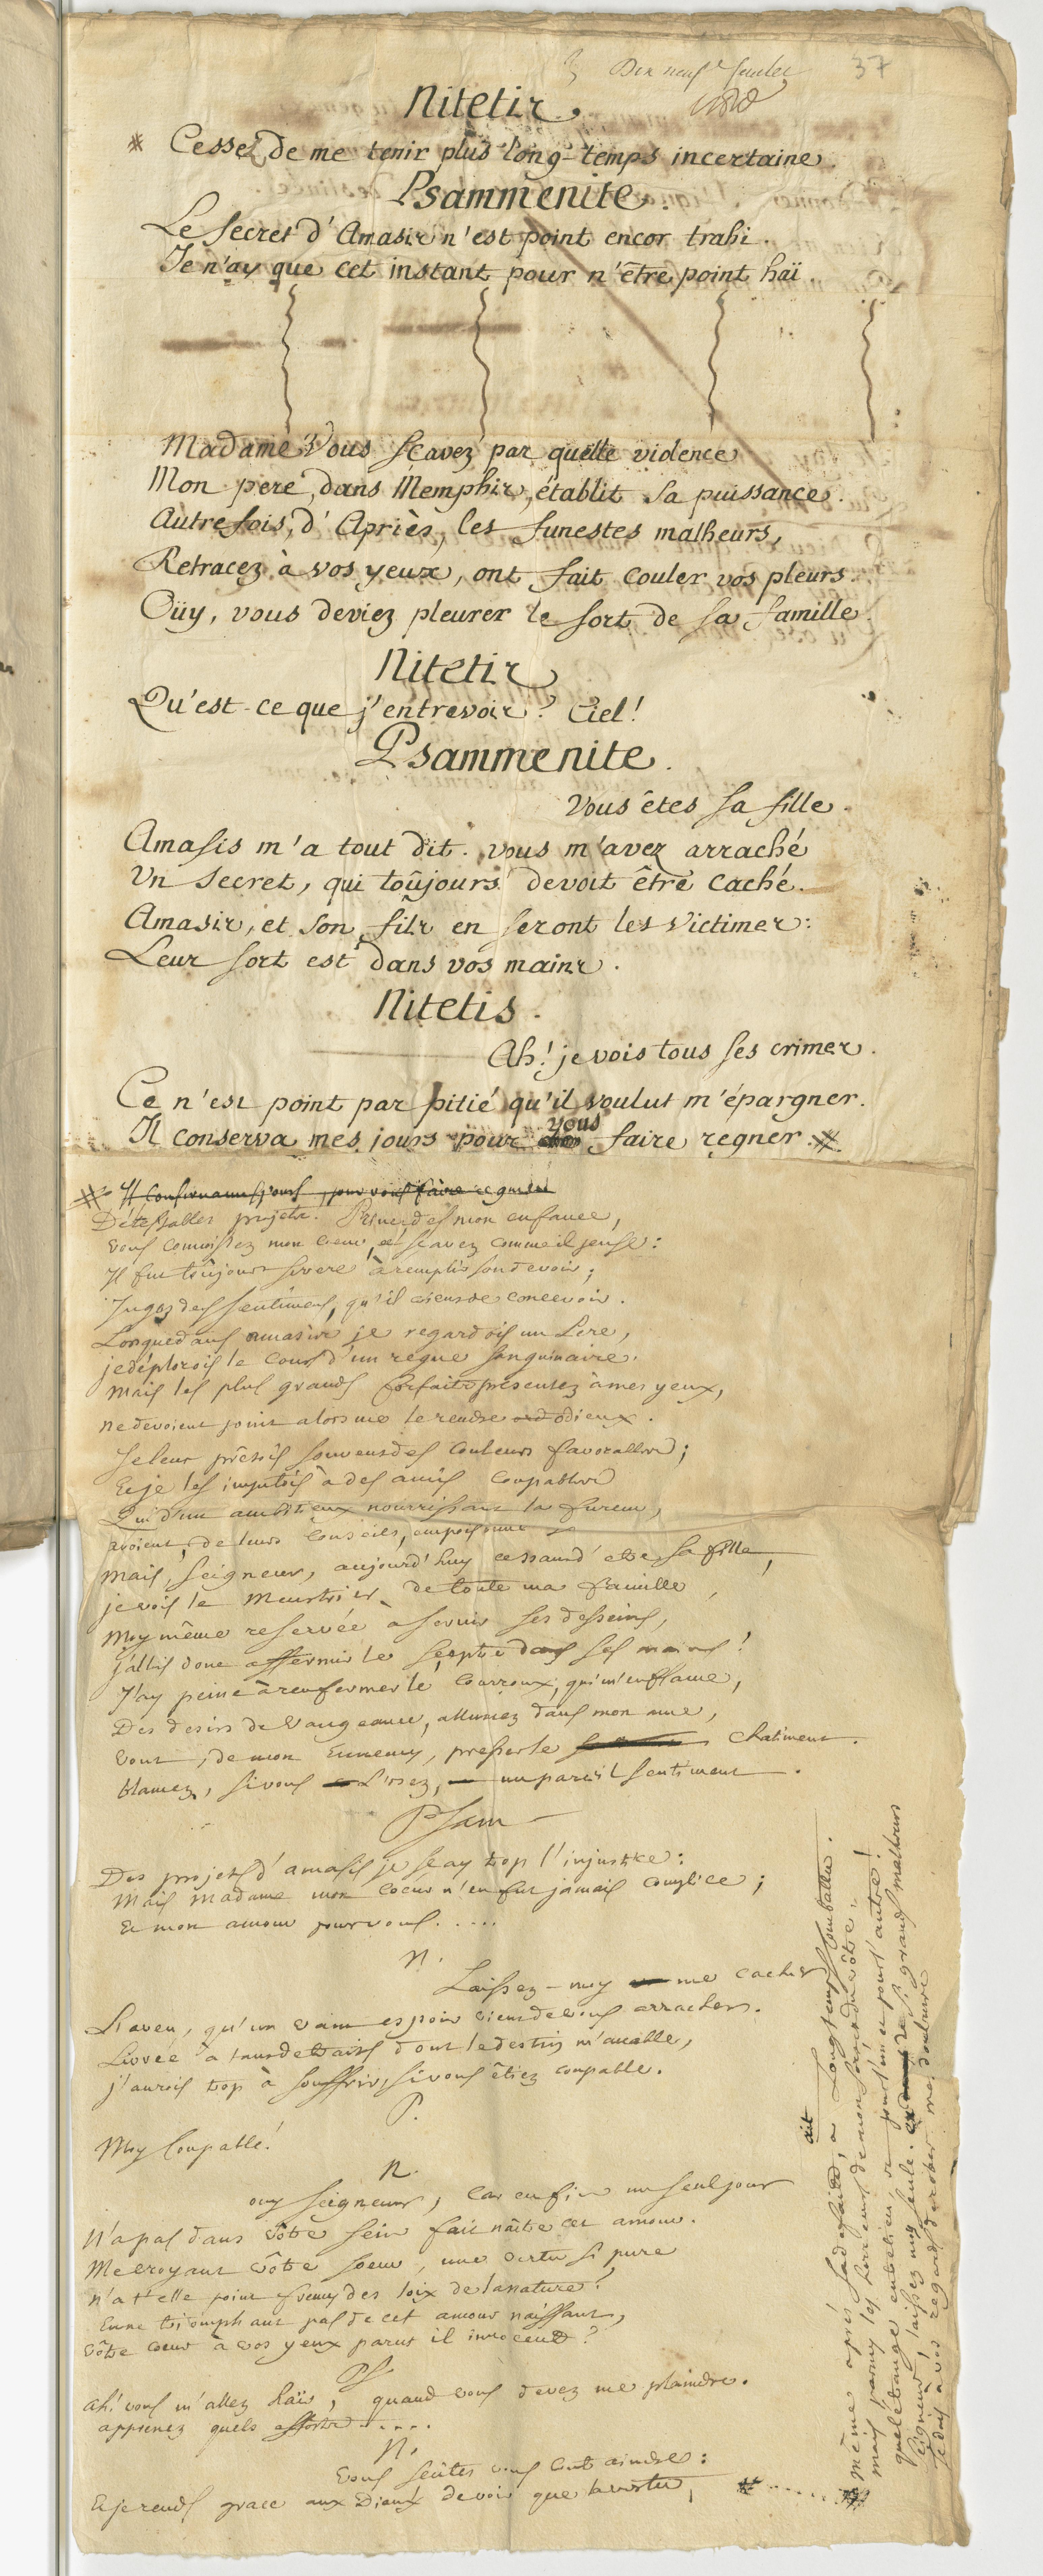 Dix neuf.e feuillet
37
Nitetis.
* Cessez de me tenir plus long-temps incertaine.
Psammenite.
Le Secret d'Amasis n'est point encor trahi.
Je n'ay que cet instant pour n'être point haï.
Madame Vous Scavez par quelle violence
Mon pere, dans Memphis, établit Sa puissance.
Autrefois, d'Apriès, les funestes malheurs,
Retracez à vos yeux, ont fait couler vos pleurs.
Oüy, vous deviez pleurer le sort de sa famille.
Nitetis
Qu'est-ce que j'entrevois? Ciel!
Psammenite.
Vous êtes sa fille.
Amasis m'a tout dit. vous m'avez arraché
Un Secret, qui toûjours devoit être caché.
Amasis, et son fils en seront les Victimes:
Leur sort est dans vos mains.
Nitetis.
Ah! je vois tous ses crimes.
Ce n'est point par pitié qu'il voulut m'épargner.
Il conserva mes jours pour vous faire regner. #
# Il conserva mes jours, pour vous faire regner
Détestables projets. Prince dès mon enfance,
vous connoissez mon coeur, et scavez comme il pense:
Il fut toûjours severe à remplir son devoir;
Jugez des sentimens, qu'il vient de concevoir.
Lorsque dans amasis je regardois un Pere,
je déplorois le cours d'un regne sanguinaire.
mais les plus grands forfaits presentez à mes yeux,
ne devoient point alors me le rendre odieux.
Je leur prêtois souvent des couleurs favorables;
Et je les imputois à des amis coupables
Qui d'un ambitieux nourrissant la fureur,
avoient, de leurs conseils, empoisonné
mais, seigneur, aujourd'huy cessant d'etre sa fille,
je vois le meurtrier de toute ma famille,
Moy même reservée à servir ses desseins,
j'allois donc affermir le sceptre dans ses mains!
J'ay peine à renfermer le courroux, qui m'enflame,
Des desirs de vangeance, allumez dans mon ame,
vont, de mon Ennemy, presser le chatiment.
blamez, si vous L'osez, un pareil sentiment.
Psam
Des projets d'amasis je scay trop l'injustice:
Mais Madame mon coeur n'en fut jamais complice;
Et mon amour pour vous.....
N.
Laissez-moy me cacher
L'aveu, qu'un vain espoir vient de vous arracher.
Livrée à tant de traits dont le destin m'accable,
j'aurois trop à souffrir, si vous êtiez coupable.
P.
Moy Coupable!
N.
ouy seigneur, car enfin un seul jour
N'a pas dans vôtre sein fait naître cet amour.
Me croyant vôtre soeur, une vertu si pure
n'a t'elle point fremy des loix de la nature?
En ne triomphant pas de cet amour naissant,
vôtre coeur à vos yeux parut il innocent?
Ps.
ah! vous m'allez haïr, quand vous devez me plaindre.
apprenez quels efforts.....
N.
vous sçûtes vous contraindre:
Et je rends grace aux Dieux de voir que la vertu, #......
# même après sa défaite, ait Longtemps combattu.
mais, parmy les horreurs de mon sort et du vôtre,
quel étrange entretien et pour l'un et pour l'autre!
seigneur, laissez moy seule. de si grands malheurs
je dois à vos regards dérober ma douleur